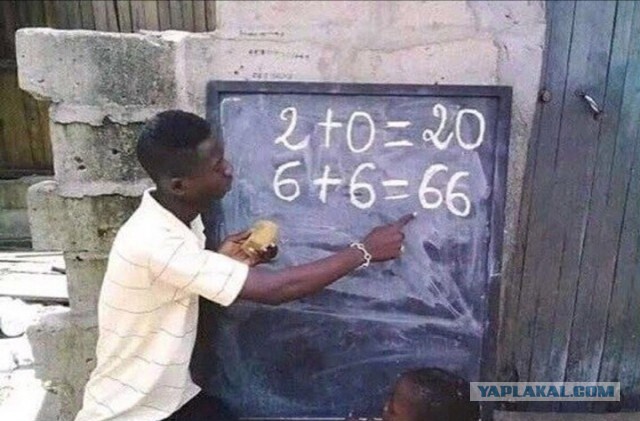 2+0=20
6+6=66
YAPLAKAL.COM